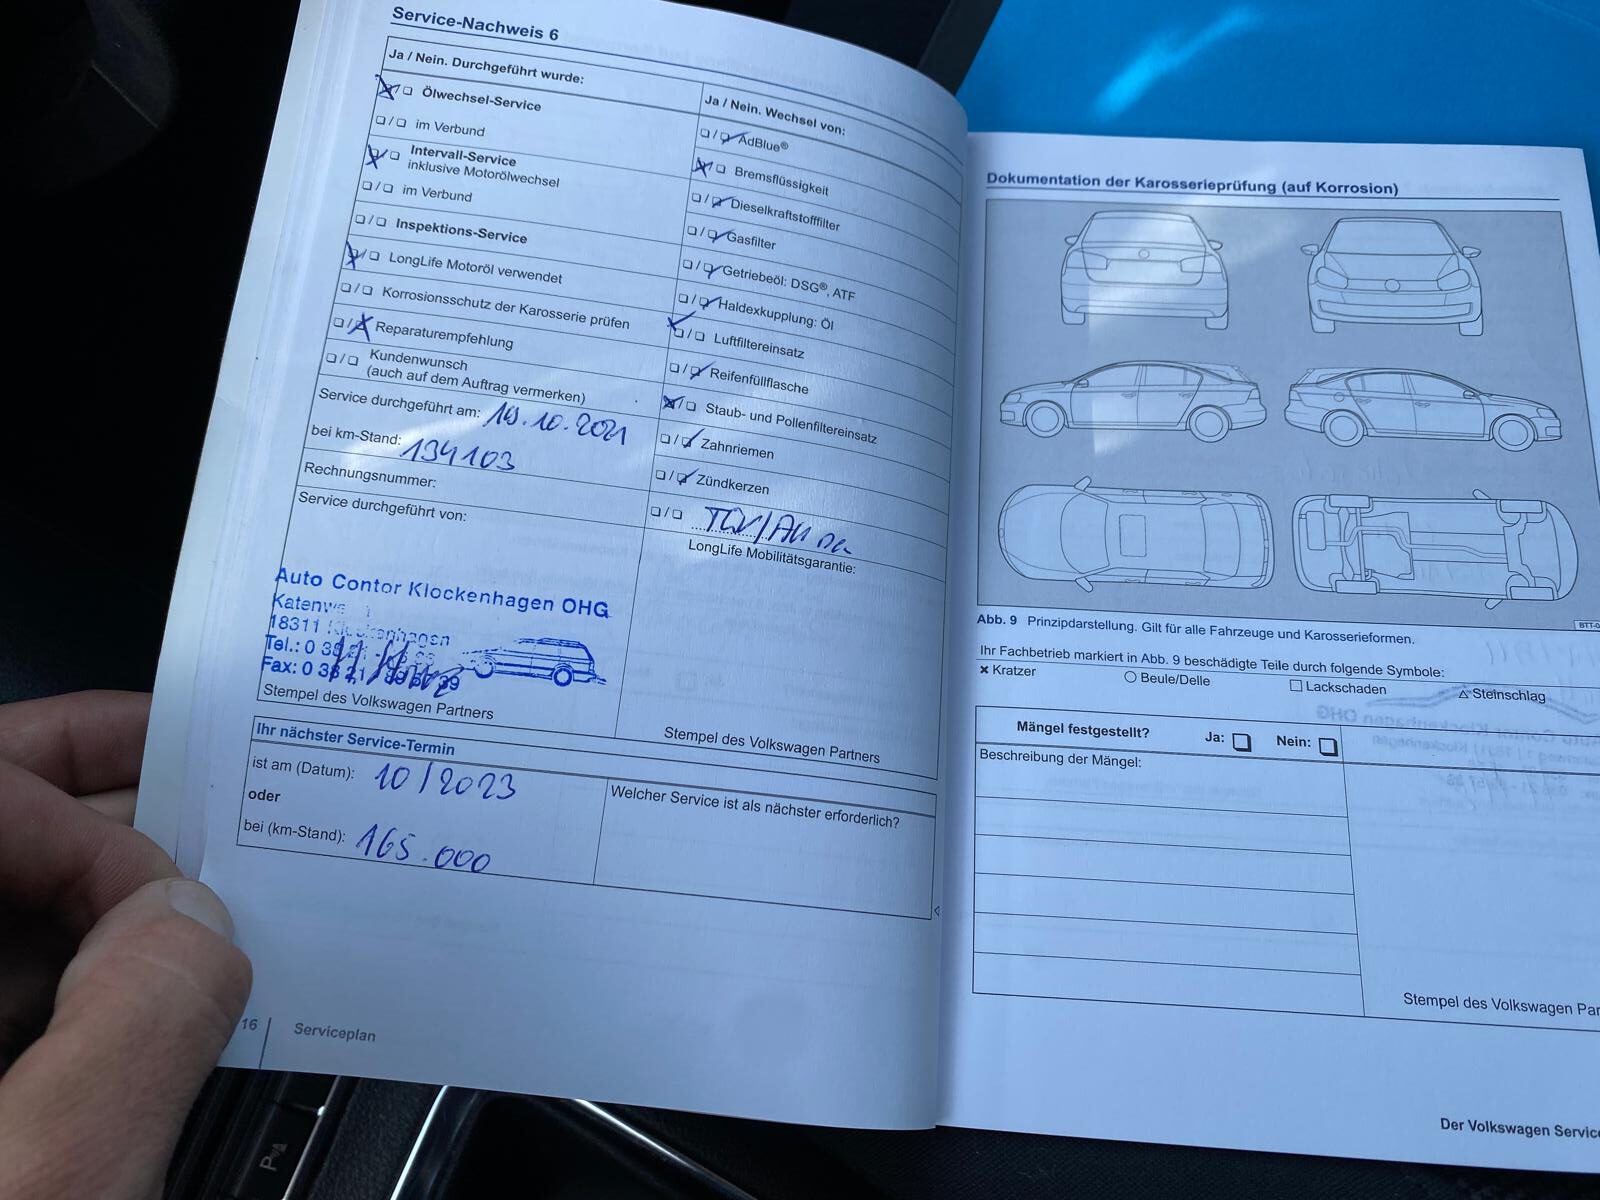 Service-Nachweis 6
Ja / Nein. Durchgeführt wurde:
Ölwechsel-Service
im Verbund
Intervall-Service
inklusive Motorölwechsel
im Verbund
Inspektions-Service
LongLife Motoröl verwendet
Korrosionsschutz der Karosserie prüfen
Reparaturempfehlung
Kundenwunsch
(auch auf dem Auftrag vermerken)
Service durchgeführt am: 19.10.2021
bei km-Stand: 134103
Rechnungsnummer:
Service durchgeführt von:
Auto Contor Klockenhagen OHG
18311 Klockenhagen
Tel.: 0 38
Fax: 0 38 21
Stempel des Volkswagen Partners
Ja / Nein. Wechsel von:
AdBlue®
Bremsflüssigkeit
Dieselkraftstofffilter
Gasfilter
Getriebeöl: DSG®, ATF
Haldexkupplung: Öl
Luftfiltereinsatz
Reifenfüllflasche
Staub- und Pollenfiltereinsatz
Zahnriemen
Zündkerzen
TÜV/AU
LongLife Mobilitätsgarantie:
Stempel des Volkswagen Partners
Ihr nächster Service-Termin
ist am (Datum): 10/2023
oder
bei (km-Stand): 165.000
Welcher Service ist als nächster erforderlich?
16
Serviceplan
Dokumentation der Karosserieprüfung (auf Korrosion)
Abb. 9 Prinzipdarstellung. Gilt für alle Fahrzeuge und Karosserieformen.
Ihr Fachbetrieb markiert in Abb. 9 beschädigte Teile durch folgende Symbole:
Kratzer
Beule/Delle
Lackschaden
Steinschlag
Mängel festgestellt?
Ja:
Nein:
Beschreibung der Mängel:
Stempel des Volkswagen
Der Volkswagen
P